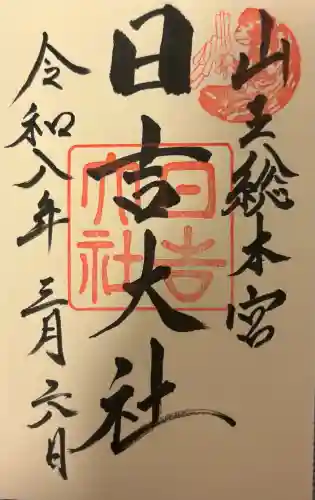 山王総本宮
日吉大社
令和八年 三月 六日
日吉大社